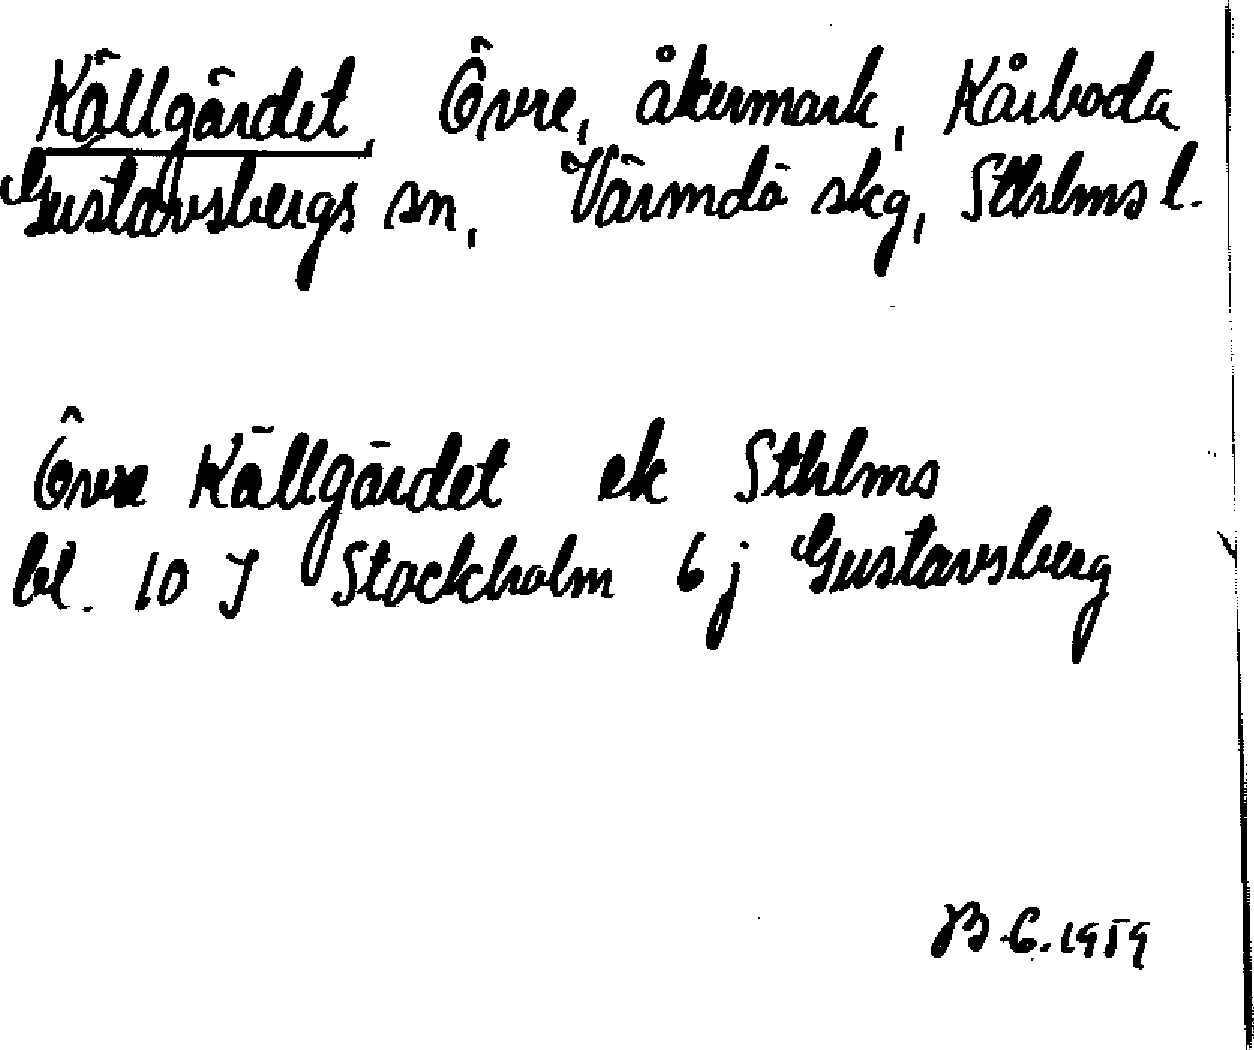 Källgärdet, Övre, åkermark, Kårboda
Gustavsbergs sn, Värmdö skg, Sthlms l.
Övre Källgärdet ek Sthlms
bl. 10 J Stockholm 6 j Gustavsberg
B C. 1959